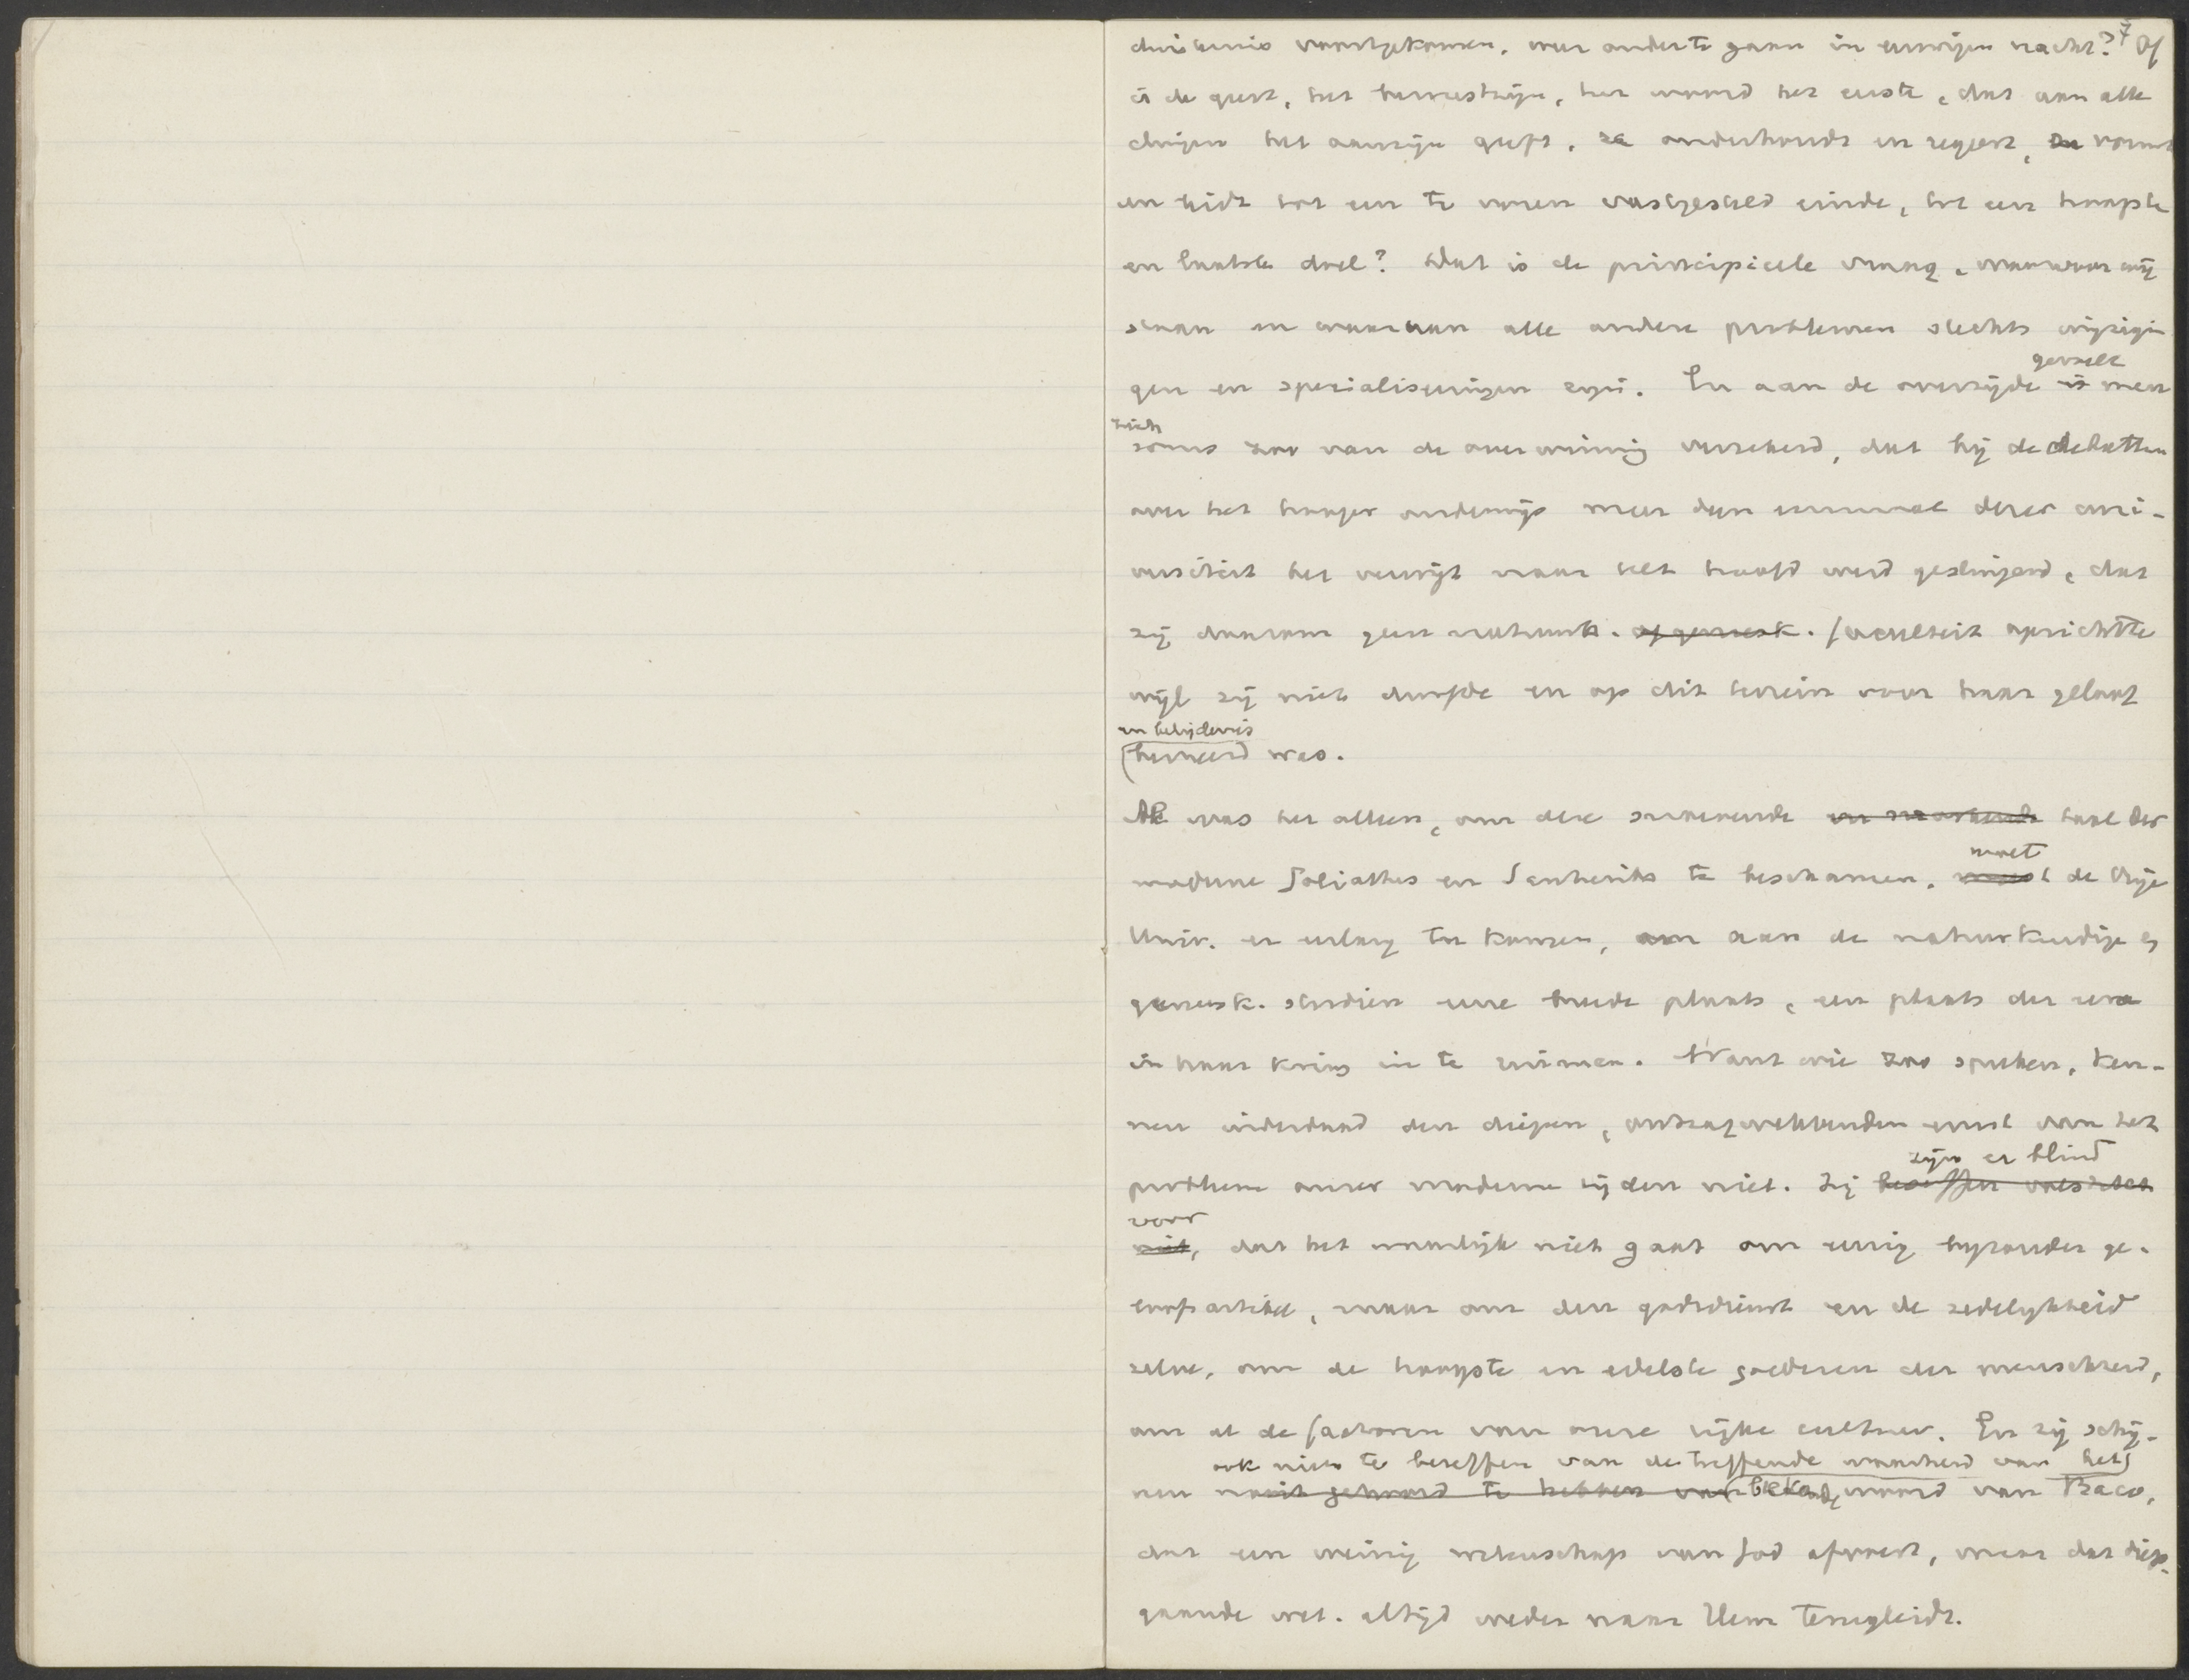 7
duisternis voortgekomen, weer onder te gaan in eeuwigen nacht? Of
is de geest, het bewustzijn, het woord het eerste, dat aan alle
dingen het aanzijn geeft, ze onderhoudt en regeert, en vormt
en leidt tot een te voren vastgesteld einde, tot een hoogste
en laatste doel? Dat is de principieele vraag, waarvoor wij
staan en waarvan alle andere problemen slechts wijzigin
gen en specialiseringen zijn. En aan de overzijde gevoelt men
zich
soms zoo van de overwinning verzekerd, dat bij de debatten
over het hooger onderwijs meer dan eenmaal dezer uni-
versiteit het verwijt naar het hoofd werd geslingerd, dat
zij daarom geen natuurk. of geneesk. faculteit oprichtte
wijl zij niet durfde en op dit terrein voor haar geloof
en belijdenis
bevreesd was.
Al was het alleen, om deze snoevende taal der
moderne Goliathes en Sanheribs te beschamen, moet de Vrije
Univ. er eerlang toe komen, om aan de natuurkundige en
geneesk. studien eene breede plaats, een plaats der eere
in haar kring in te ruimen. Want wie zoo spreken, ken-
nen inderdaad den diepen, ontzagwekkenden ernst van het
zijn er blind
probleem onzer moderne tijden niet. Zij beseffen
voor
niet, dat het namelijk niet gaat om eenig byzonder ge-
loofsartikel, maar om den godsdienst en de zedelykheid
zelve, om de hoogste en edelste goederen der menschheid,
om al de factoren van onze rijke cultuur. En zij schij-
ook niets te beseffen van de treffende waarheid van het
nen nooit gehoord te hebben van bekende woord van Baco,
dat een weinig wetenschap van God afvoert, maar dat diep-
gaande wet. altijd weder naar Hem terugleidt.